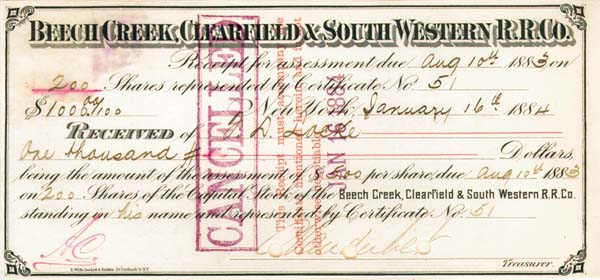 BEECH CREEK, CLEARFIELD & SOUTH WESTERN R.R. CO.
Receipt for assessment due Aug 10th 1883 on
200 Shares represented by Certificate No. 51
$1000 00/100 New York, January 16th 1884
RECEIVED of D. Locke
One thousand Dollars,
being the amount of the assessment of $5.00 per share, due Aug 10th 1883
on 200 Shares of the Capital Stock of the Beech Creek, Clearfield & South Western R.R. Co.
standing in his name and represented by Certificate No. 51
A.C.
Treasurer.
CANCELLED
This Receipt must accompany the
JAN 16 1884